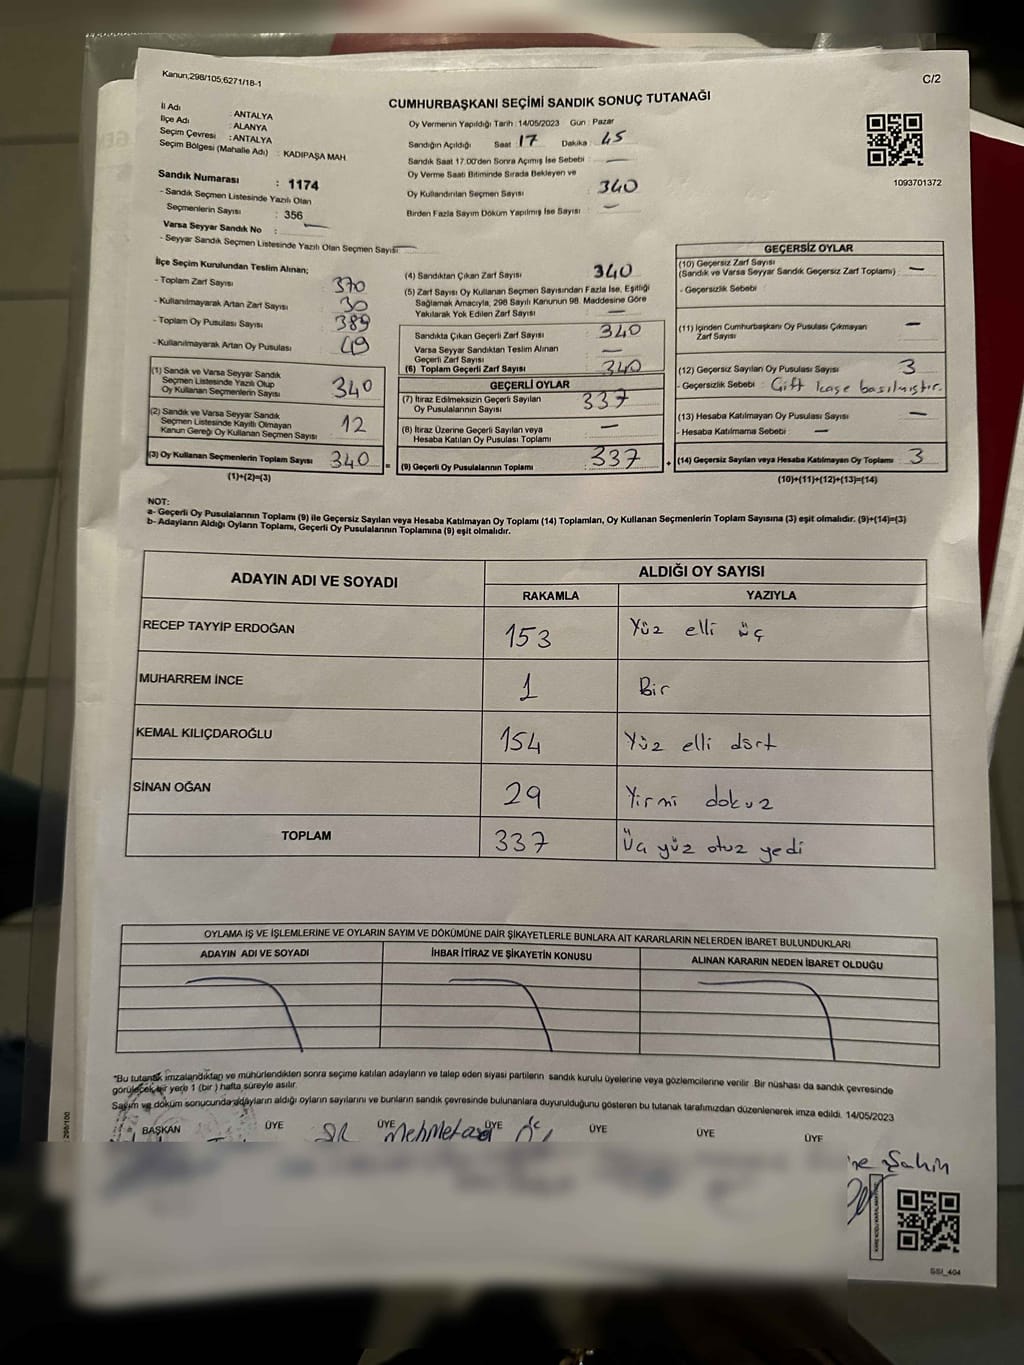 Kanun;298/105;6271/18-1
C/2
CUMHURBAŞKANI SEÇİMİ SANDIK SONUÇ TUTANAĞI
İl Adı : ANTALYA
İlçe Adı : ALANYA
Seçim Çevresi : ANTALYA
Seçim Bölgesi (Mahalle Adı) : KADIPAŞA MAH.
Sandık Numarası : 1174
- Sandık Seçmen Listesinde Yazılı Olan
Seçmenlerin Sayısı : 356
Varsa Seyyar Sandık No : —
- Seyyar Sandık Seçmen Listesinde Yazılı Olan Seçmen Sayısı: —
Oy Vermenin Yapıldığı Tarih : 14/05/2023 Gün : Pazar
Sandığın Açıldığı Saat : 17 Dakika : 45
Sandık Saat 17.00'den Sonra Açımış İse Sebebi : —
Oy Verme Saati Bitiminde Sırada Bekleyen ve
Oy Kullandırılan Seçmen Sayısı : 340
Birden Fazla Sayım Döküm Yapılmış İse Sayısı : —
1093701372
İlçe Seçim Kurulundan Teslim Alınan;
- Toplam Zarf Sayısı : 370
- Kullanılmayarak Artan Zarf Sayısı : 30
- Toplam Oy Pusulası Sayısı : 389
- Kullanılmayarak Artan Oy Pusulası : 49
(1) Sandık ve Varsa Seyyar Sandık
Seçmen Listesinde Yazılı Olup
Oy Kullanan Seçmenlerin Sayısı : 340
(2) Sandık ve Varsa Seyyar Sandık
Seçmen Listesinde Kayıtlı Olmayan
Kanun Gereği Oy Kullanan Seçmen Sayısı : 12
(3) Oy Kullanan Seçmenlerin Toplam Sayısı : 340
(1)+(2)=(3)
(4) Sandıktan Çıkan Zarf Sayısı : 340
(5) Zarf Sayısı Oy Kullanan Seçmen Sayısından Fazla İse, Eşitliği
Sağlamak Amacıyla, 298 Sayılı Kanunun 98. Maddesine Göre
Yakılarak Yok Edilen Zarf Sayısı : —
Sandıkta Çıkan Geçerli Zarf Sayısı : 340
Varsa Seyyar Sandıktan Teslim Alınan
Geçerli Zarf Sayısı : —
(6) Toplam Geçerli Zarf Sayısı : 340
GEÇERLİ OYLAR
(7) İtiraz Edilmeksizin Geçerli Sayılan
Oy Pusulalarının Sayısı : 337
(8) İtiraz Üzerine Geçerli Sayılan veya
Hesaba Katılan Oy Pusulası Toplamı : —
= (9) Geçerli Oy Pusulalarının Toplamı : 337
GEÇERSİZ OYLAR
(10) Geçersiz Zarf Sayısı : —
(Sandık ve Varsa Seyyar Sandık Geçersiz Zarf Toplamı)
- Geçersizlik Sebebi :
(11) İçinden Cumhurbaşkanı Oy Pusulası Çıkmayan
Zarf Sayısı : —
(12) Geçersiz Sayılan Oy Pusulası Sayısı : 3
- Geçersizlik Sebebi : Çift kaşe basılmıştır.
(13) Hesaba Katılmayan Oy Pusulası Sayısı : —
- Hesaba Katılmama Sebebi : —
+ (14) Geçersiz Sayılan veya Hesaba Katılmayan Oy Toplamı : 3
(10)+(11)+(12)+(13)=(14)
NOT:
a- Geçerli Oy Pusulalarının Toplamı (9) ile Geçersiz Sayılan veya Hesaba Katılmayan Oy Toplamı (14) Toplamları, Oy Kullanan Seçmenlerin Toplam Sayısına (3) eşit olmalıdır. (9)+(14)=(3)
b- Adayların Aldığı Oyların Toplamı, Geçerli Oy Pusulalarının Toplamına (9) eşit olmalıdır.
ADAYIN ADI VE SOYADI ALDIĞI OY SAYISI
RAKAMLA YAZIYLA
RECEP TAYYİP ERDOĞAN 153 Yüz elli üç
MUHARREM İNCE 1 Bir
KEMAL KILIÇDAROĞLU 154 Yüz elli dört
SİNAN OĞAN 29 Yirmi dokuz
TOPLAM 337 Üç yüz otuz yedi
OYLAMA İŞ VE İŞLEMLERİNE VE OYLARIN SAYIM VE DÖKÜMÜNE DAİR ŞİKAYETLERLE BUNLARA AİT KARARLARIN NELERDEN İBARET BULUNDUKLARI
ADAYIN ADI VE SOYADI İHBAR İTİRAZ VE ŞİKAYETİN KONUSU ALINAN KARARIN NEDEN İBARET OLDUĞU
"Bu tutanak imzalandıktan ve mühürlendikten sonra seçime katılan adayların ve talep eden siyasi partilerin sandık kurulu üyelerine veya gözlemcilerine verilir. Bir nüshası da sandık çevresinde
görülecek bir yere 1 (bir) hafta süreyle asılır.
Sayım ve döküm sonucunda adayların aldığı oyların sayılarını ve bunların sandık çevresinde bulunanlara duyurulduğunu gösteren bu tutanak tarafımızdan düzenlenerek imza edildi. 14/05/2023
BAŞKAN ÜYE ÜYE ÜYE ÜYE ÜYE ÜYE
Şahin
298/100
SSI_404